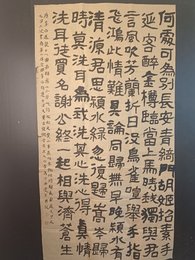 何處可為別長安青綺門胡姬招素手
延客醉金樽臨當上馬時我獨與君
言風吹芳蘭折日沒鳥雀喧舉手指
飛鴻此情難具論同歸無早晚潁水有
清源君思潁水綠忽復歸嵩岑歸
時莫洗耳為我洗其心洗心得真情
洗耳徒買名謝公終一起相與濟蒼生